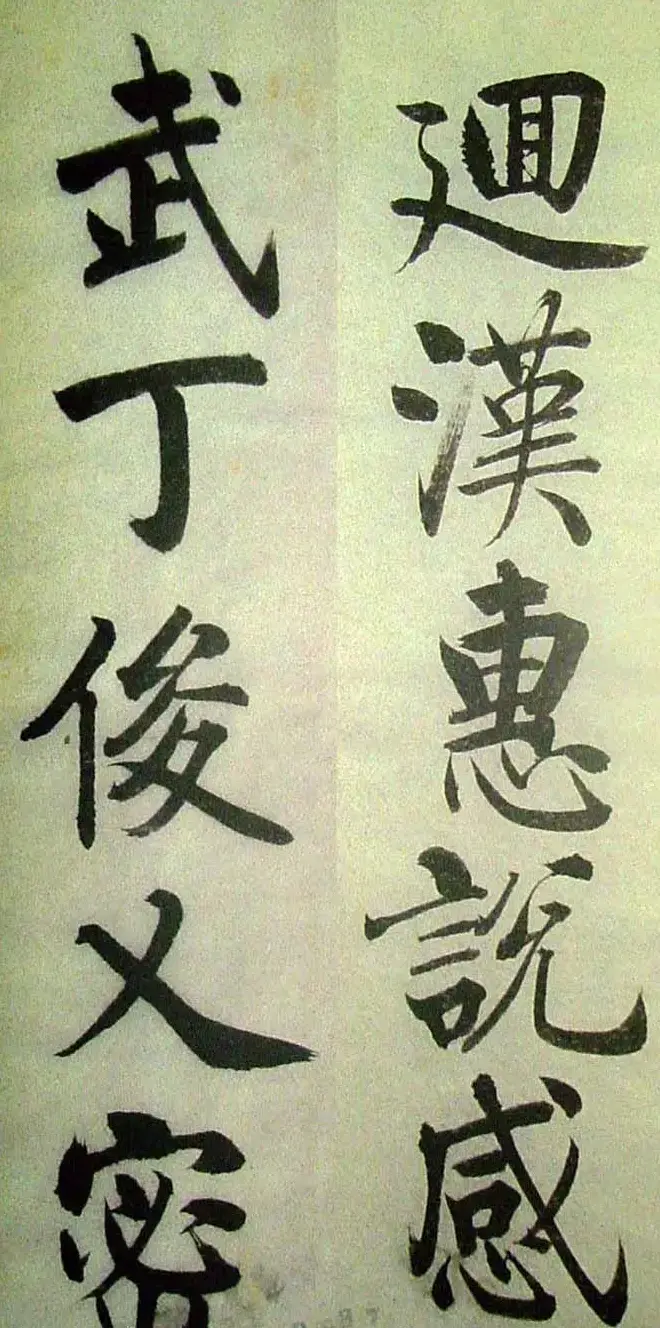 廻漢惠説感
武丁俊乂密